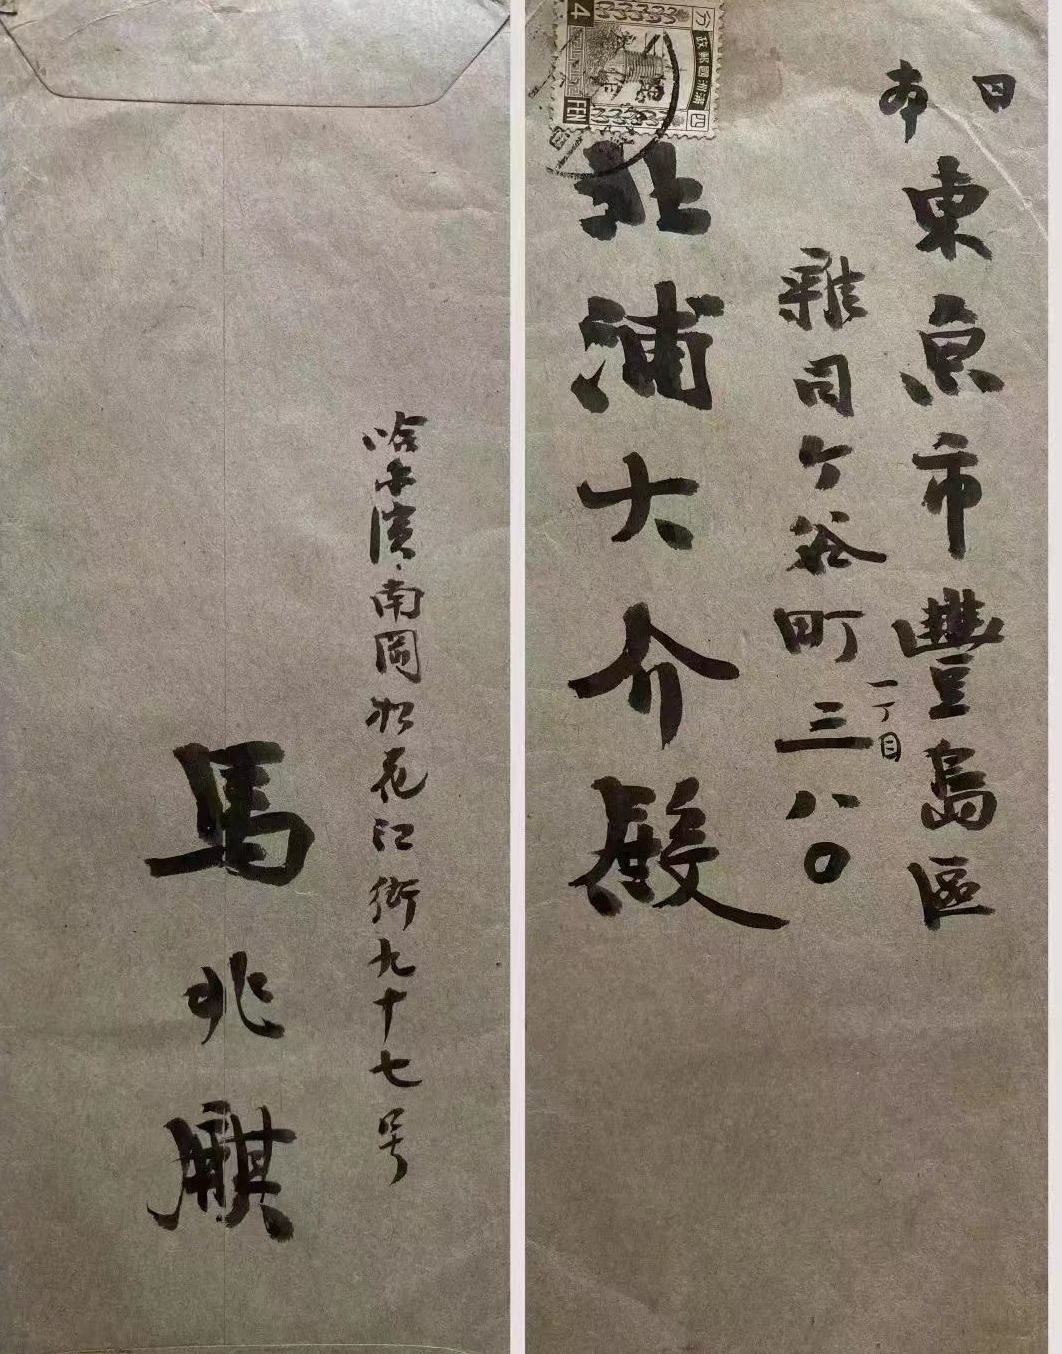 日本
東京市豐島區
雜司ケ谷町三八〇
一丁目
北浦大介殿
滿洲國郵政
四分
4
FEN
哈尔濱·南岡松花江街九十七号
馬兆麒